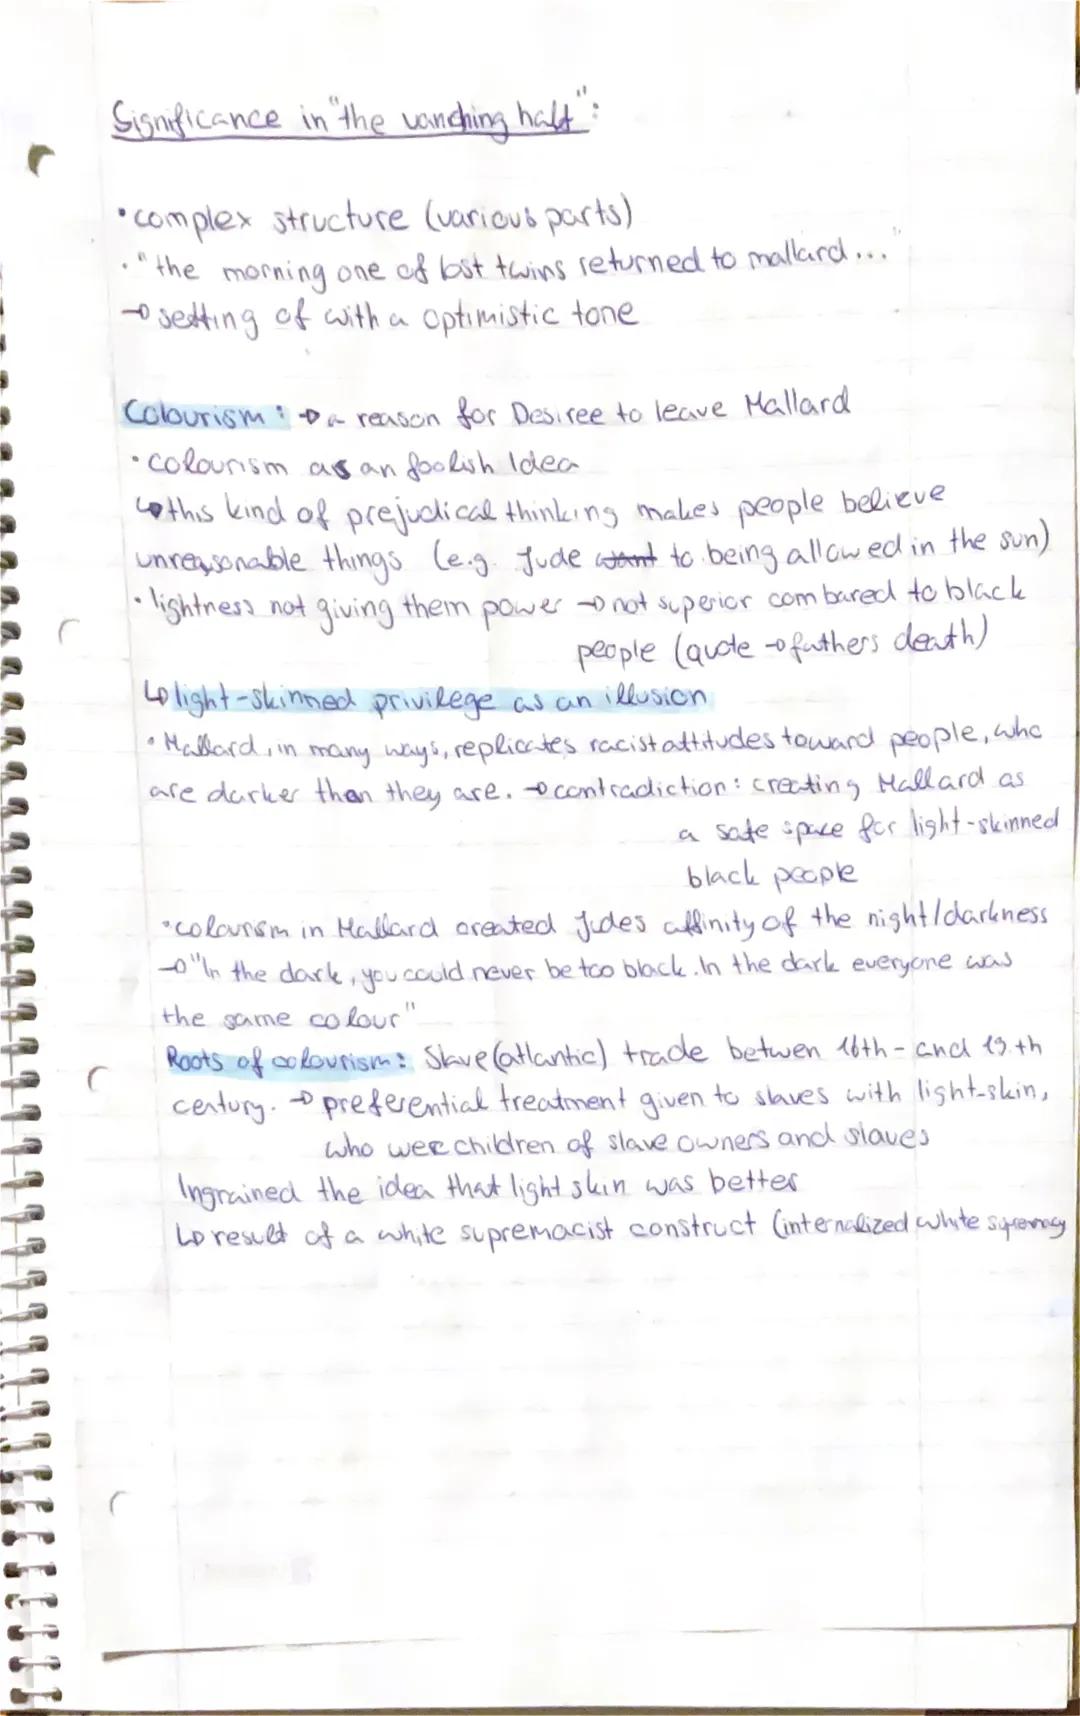 Significance in "the vanching half":
• complex structure (various parts)
• "the morning one of lost twins returned to mallard..."
→ setting of with a optimistic tone
Colourism: → a reason for Desiree to leave Mallard
• colourism as an foolish Idea
↳ this kind of prejudical thinking makes people believe
unreasonable things (e.g. Jude want to being allowed in the sun)
• lightness not giving them power → not superior combared to black
people (quote → fathers death)
↳ light-skinned privilege as an illusion
• Mallard, in many ways, replicates racist attitudes toward people, who
are darker than they are. → contradiction: creating Mallard as
a safe space for light-skinned
black people
• colourism in Mallard created Judes affinity of the night/darkness
→ "In the dark, you could never be too black. In the dark everyone was
the same colour"
Roots of colourism: Slave (atlantic) trade betwen 16th - and 19.th
century. → preferential treatment given to slaves with light-skin,
who wer children of slave owners and slaves
Ingrained the idea that light skin was better
↳ result of a white supremacist construct (internalized white supremacy